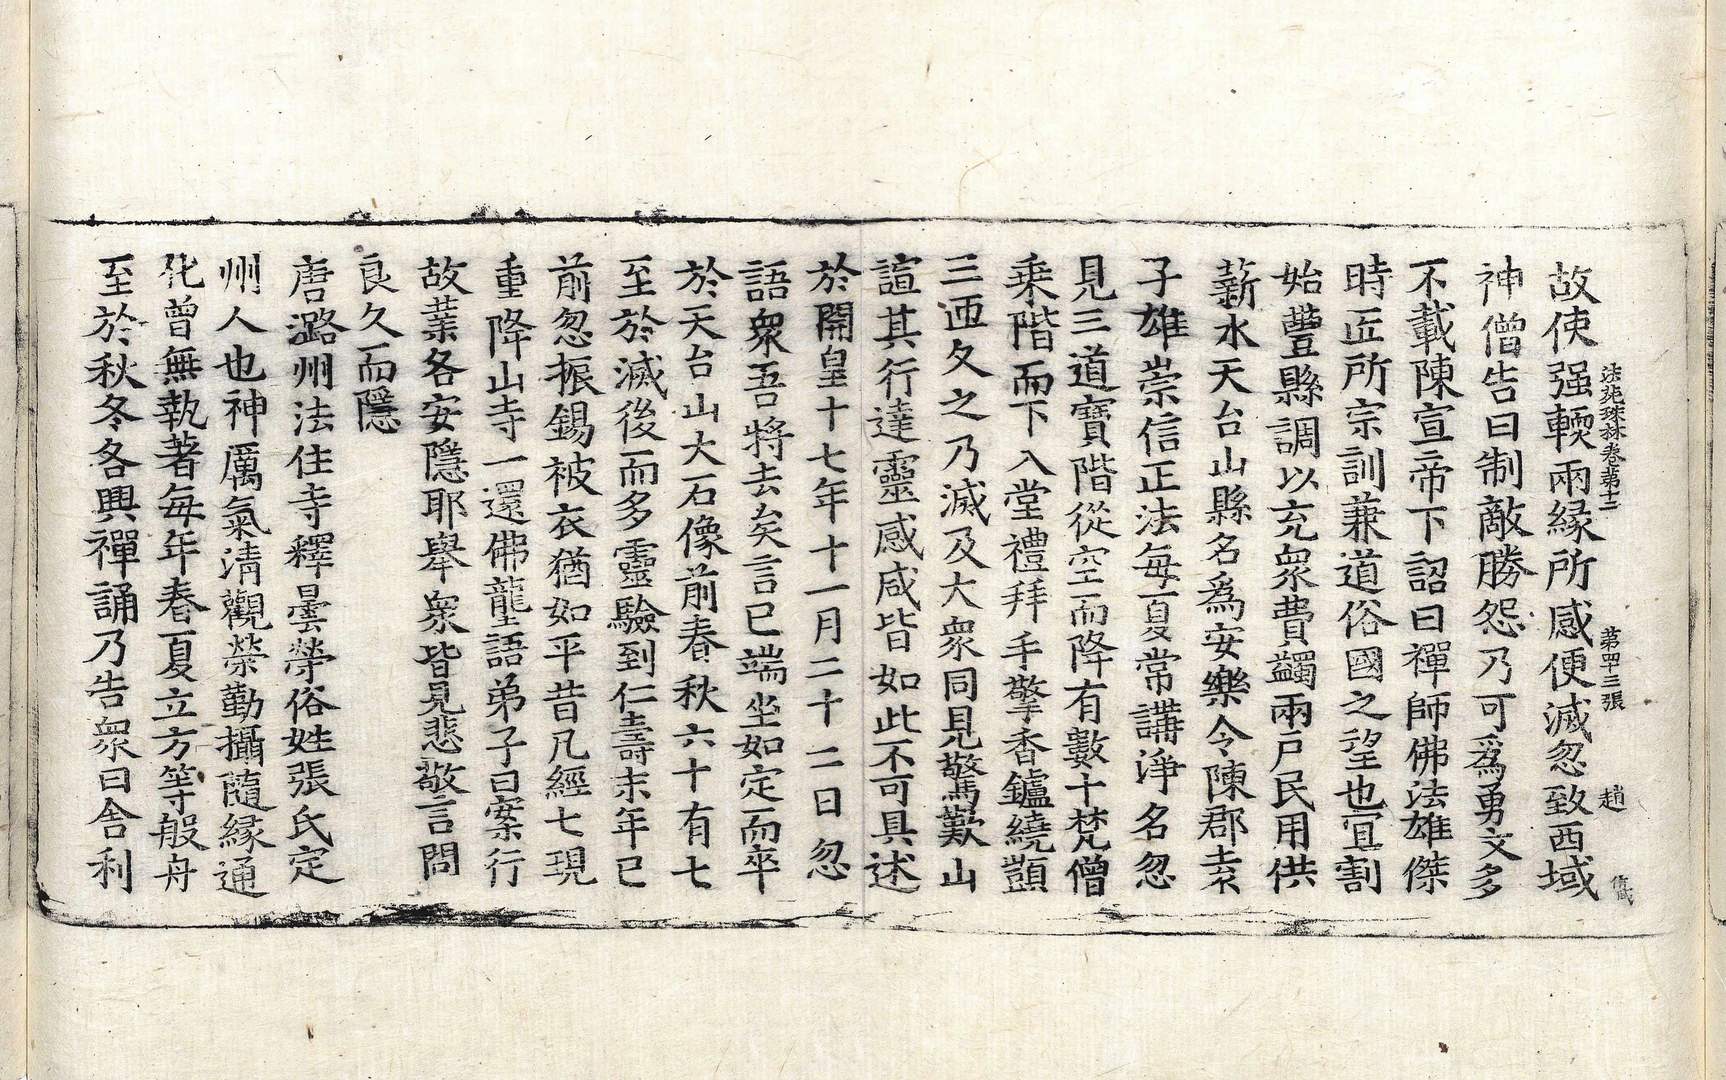 法苑珠林卷第十二 第四十三張 趙
故使强輭兩緣所感便滅忽致西域
神僧告曰制敵勝怨乃可爲勇文多
不載陳宣帝下詔曰禪師佛法雄傑
時匠所宗訓兼道俗國之望也宜割
始豐縣調以充衆費蠲兩戶民用供
薪水天台山縣名爲安樂令陳郡袁
子雄崇信正法每夏常講淨名忽
見三道寶階從空而降有數十梵僧
乗階而下入堂禮拜手擎香鑪繞顗
三帀久之乃滅及大衆同見驚歎山
諠其行達靈感咸皆如此不可具述
於開皇十七年十一月二十二日忽
語衆吾將去矣言已端坐如定而卒
於天台山大石像前春秋六十有七
至於滅後而多靈驗到仁壽末年已
前忽振錫被衣猶如平昔凡經七現
重降山寺一還佛龍語弟子曰案行
故業各安隱耶舉衆皆見悲敬言問
良久而隱
唐潞州法住寺釋曇榮俗姓張氏定
州人也神厲氣清觀榮勤攝隨緣通
化曾無執著每年春夏立方等般舟
至於秋冬各興禪誦乃告衆曰舎利